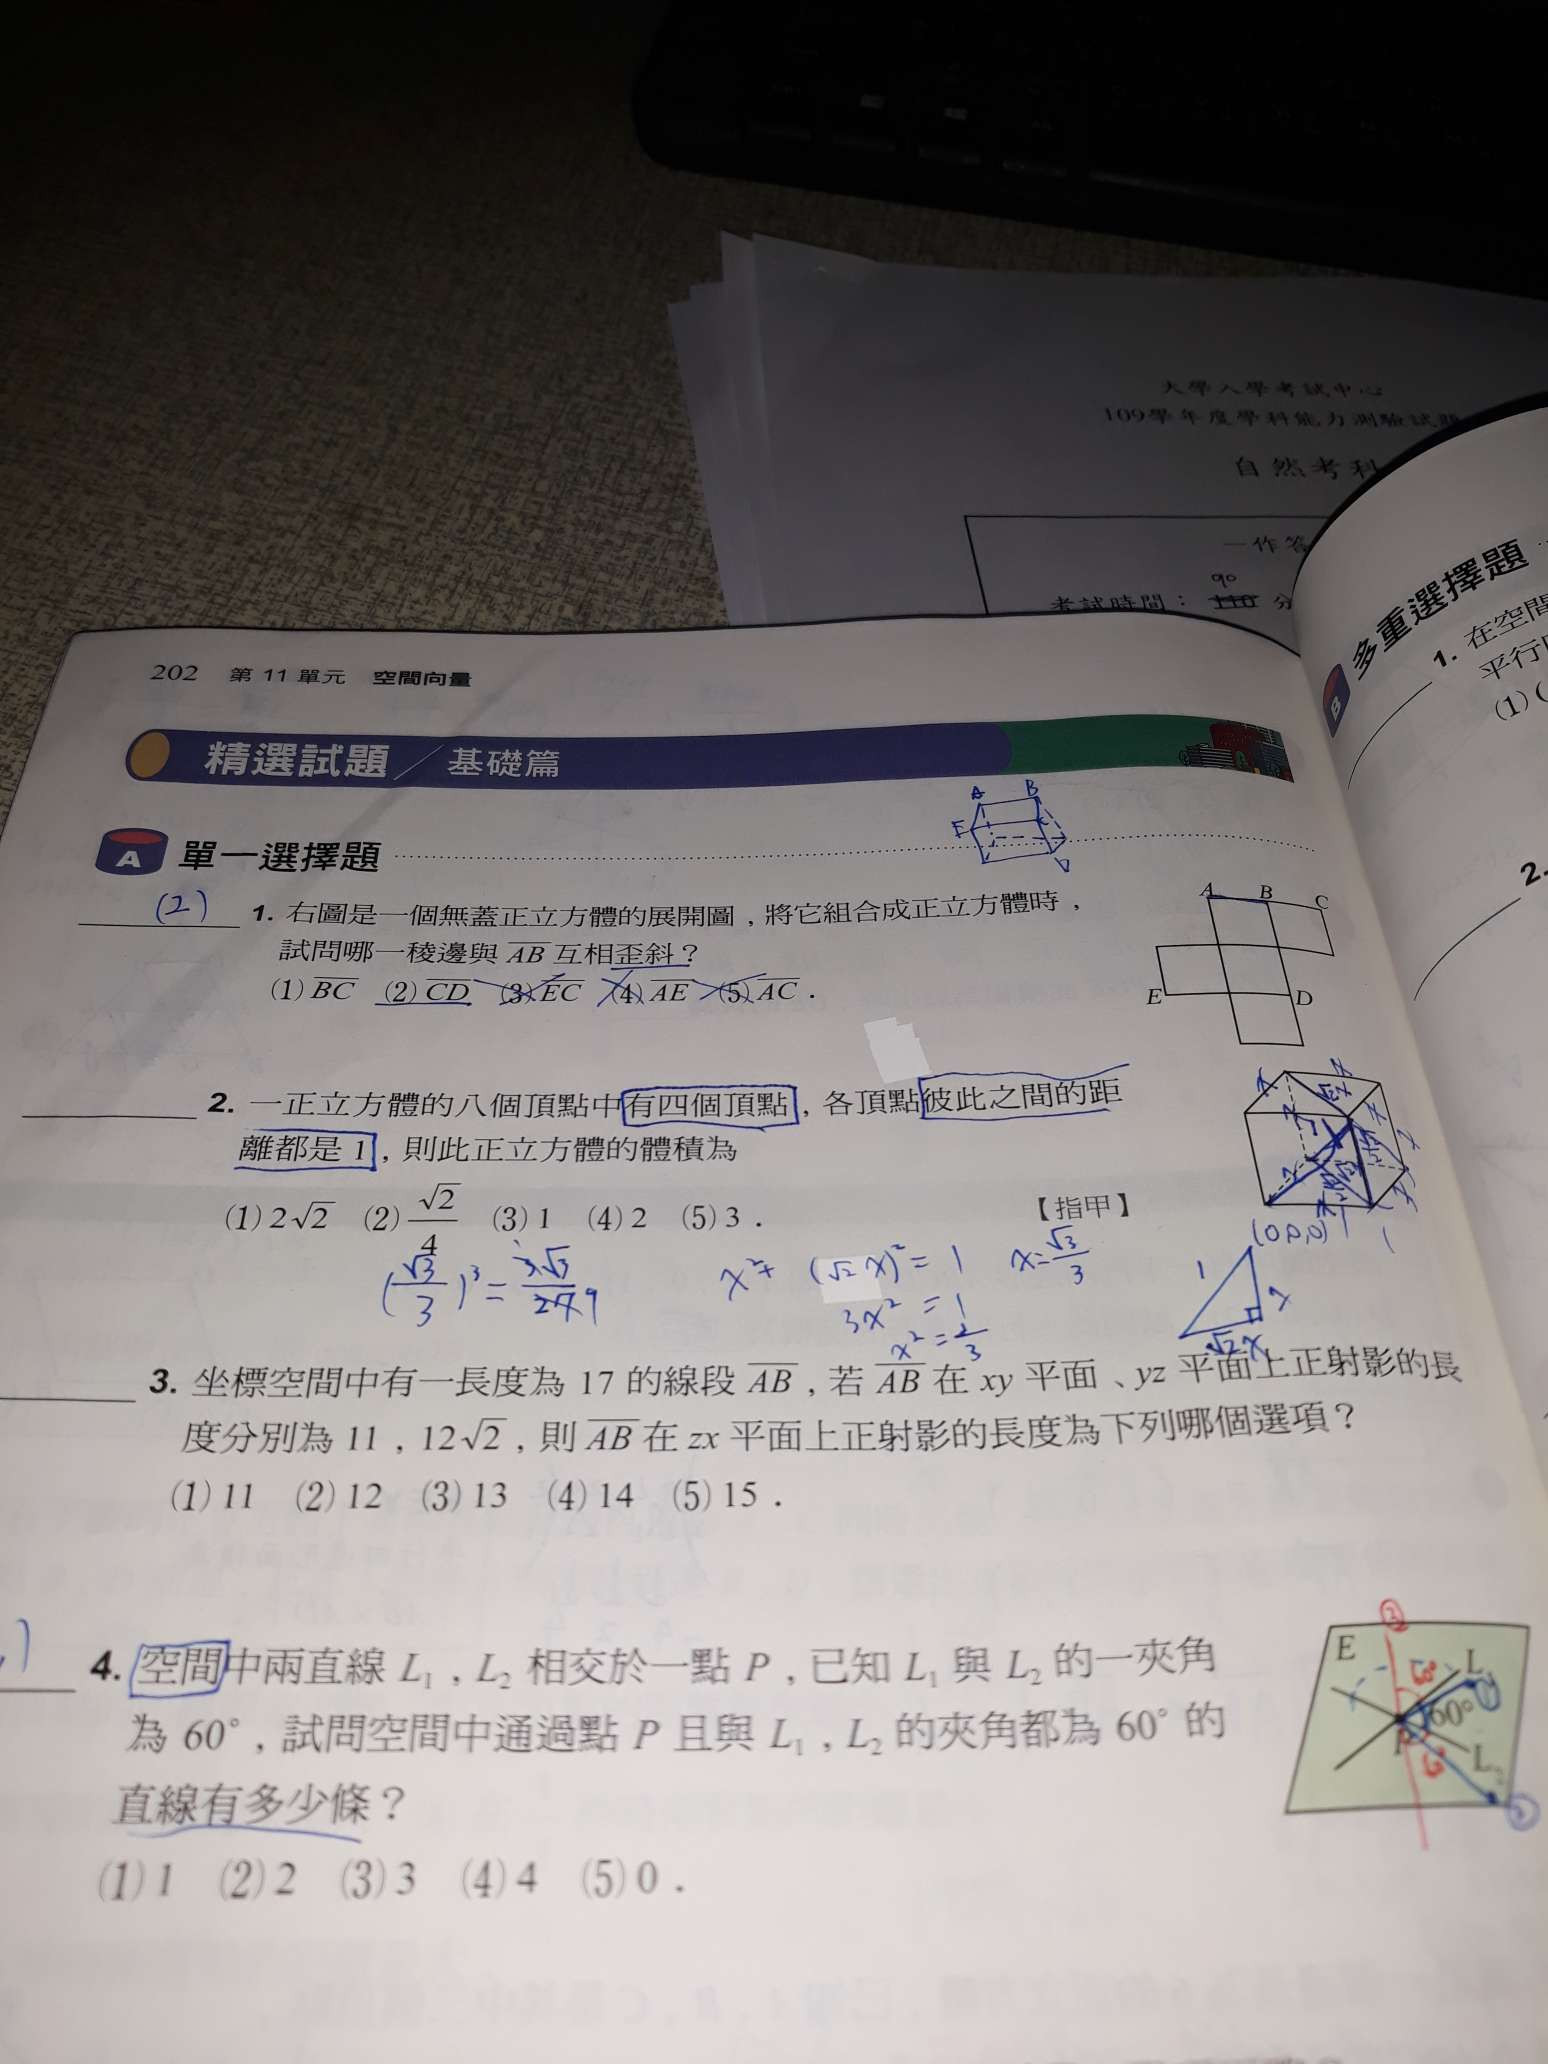 大學入學考試中心
109學年度學科能力測驗試題
自然考科
一作答
90
考試時間：110 分
多重選擇題
B
1. 在空間
平行
(1)(
2.
202 第 11 單元 空間向量
精選試題／基礎篇
A 單一選擇題
A B
E C
D
(2) 1. 右圖是一個無蓋正立方體的展開圖，將它組合成正立方體時，
試問哪一稜邊與 AB 互相歪斜？
(1) BC (2) CD (3) EC (4) AE (5) AC．
A B C
E D
2. 一正立方體的八個頂點中有四個頂點，各頂點彼此之間的距
離都是 1，則此正立方體的體積為
(1) 2√2 (2) √2/4 (3) 1 (4) 2 (5) 3． 【指甲】
(√3/3)³ = 3√3/27 9 x²+(√2x)²=1 x=√3/3
3x²=1
x²=1/3
(0,0,0)
1 x
√2x
3. 坐標空間中有一長度為 17 的線段 AB，若 AB 在 xy 平面、yz 平面上正射影的長
度分別為 11，12√2，則 AB 在 zx 平面上正射影的長度為下列哪個選項？
(1) 11 (2) 12 (3) 13 (4) 14 (5) 15．
4. 空間中兩直線 L₁，L₂ 相交於一點 P，已知 L₁ 與 L₂ 的一夾角
為 60°，試問空間中通過點 P 且與 L₁，L₂ 的夾角都為 60° 的
直線有多少條？
(1) 1 (2) 2 (3) 3 (4) 4 (5) 0．
E L
60°
P L₂